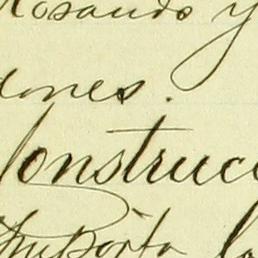 Rosando y
dones.
Construcc
Importa la